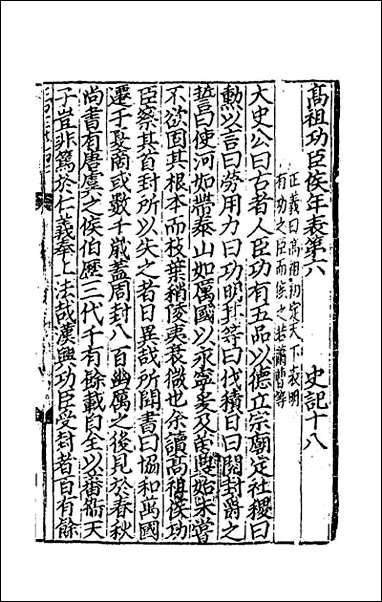 高祖功臣侯年表第六 史記十八
正義曰高祖初定天下表明
有功之臣而侯之若蕭曹等
太史公曰古者人臣功有五品以德立宗廟定社稷曰
勳以言曰勞用力曰功明其等曰伐積日曰閱封爵之
誓曰使河如帶泰山如厲國以永寧爰及苗裔始未嘗
不欲固其根本而枝葉稍陵夷衰微也余讀高祖侯功
臣察其首封所以失之者曰異哉所聞書曰協和萬國
遷于夏商或數千歲蓋周封八百幽厲之後見於春秋
尚書有唐虞之侯伯歷三代千有餘載自全以蕃衛天
子豈非篤於仁義奉上法哉漢興功臣受封者百有餘